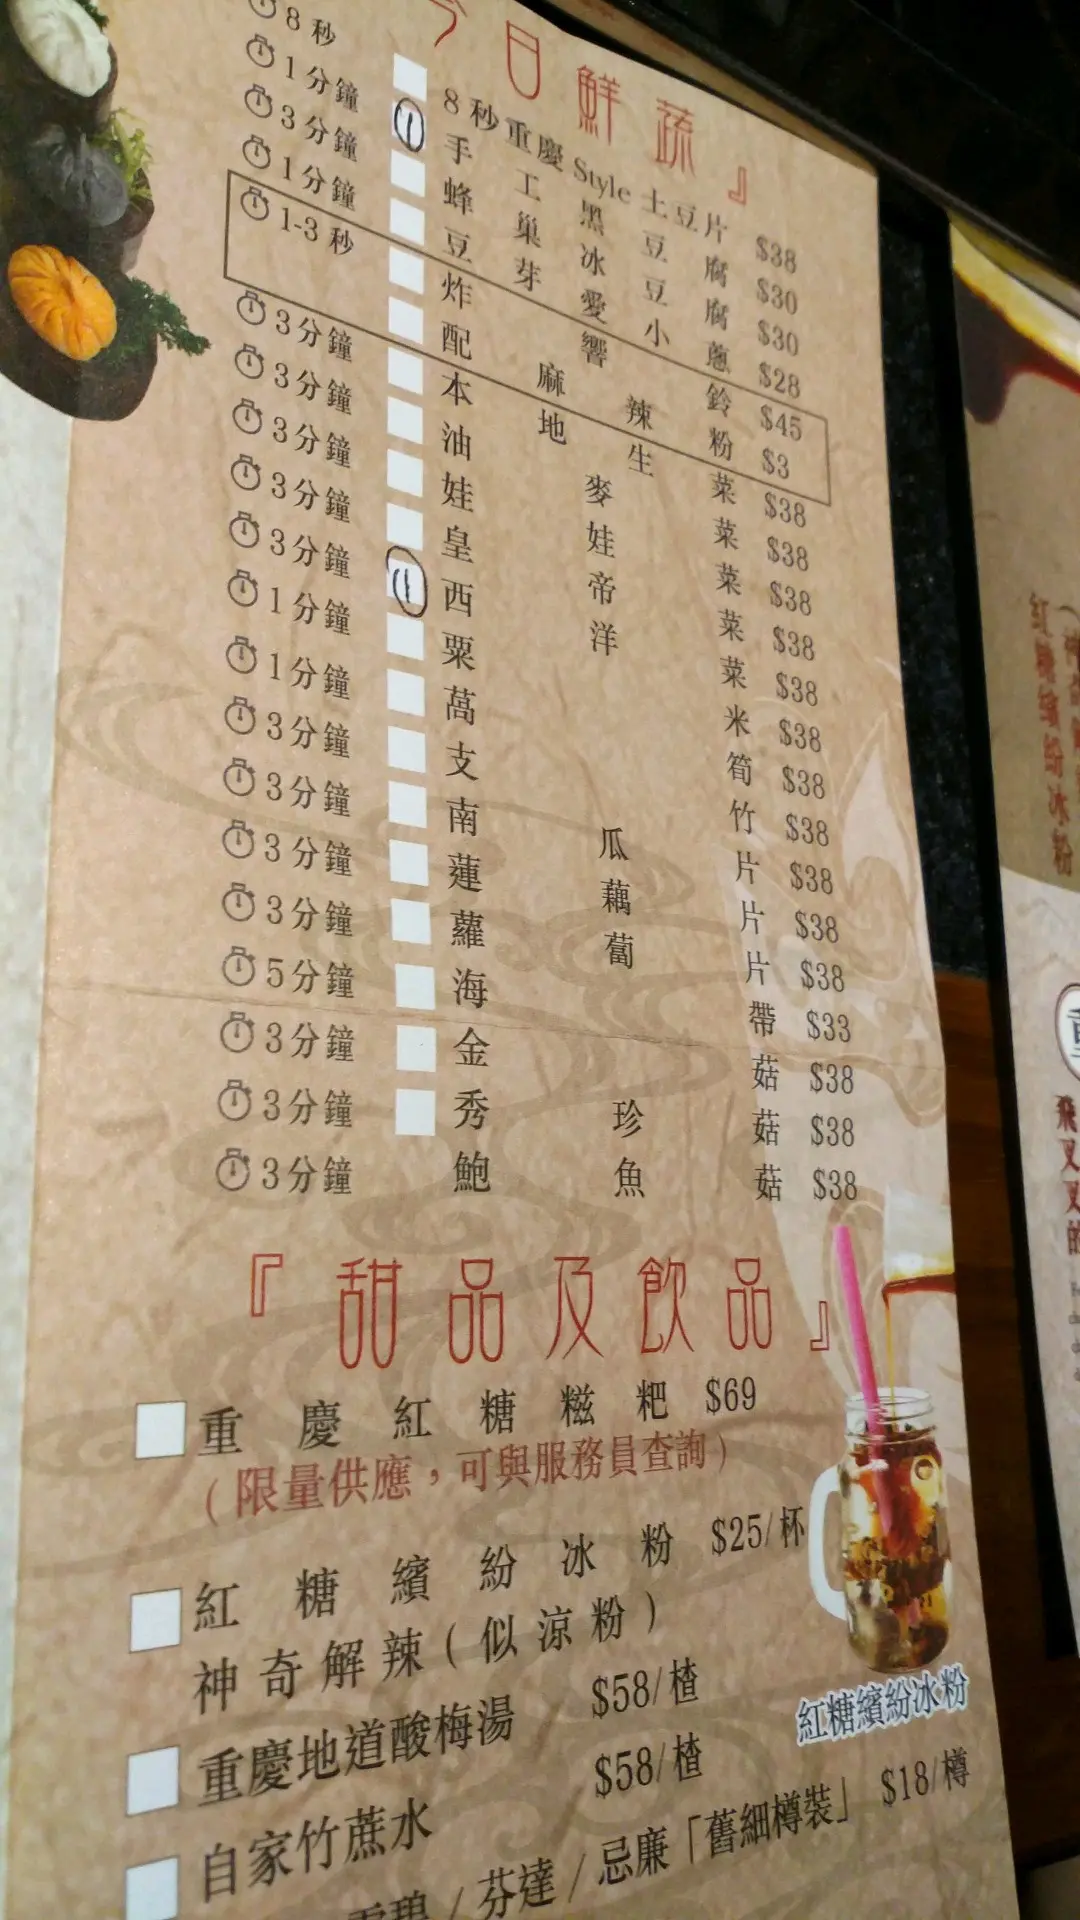 今日鮮蔬』
8秒 8秒重慶Style土豆片 $38
1分鐘 1 手工黑豆腐 $30
3分鐘 蜂巢冰豆腐 $30
1分鐘 豆芽愛小蔥 $28
1-3秒 炸響鈴 $45
配麻辣粉 $3
3分鐘 本地生菜 $38
3分鐘 油麥菜 $38
3分鐘 娃娃菜 $38
3分鐘 皇帝菜 $38
3分鐘 1 西洋菜 $38
1分鐘 粟米 $38
1分鐘 萵筍 $38
3分鐘 支竹 $38
3分鐘 南瓜片 $38
3分鐘 蓮藕片 $38
3分鐘 蘿蔔片 $38
5分鐘 海帶 $33
3分鐘 金菇 $38
3分鐘 秀珍菇 $38
3分鐘 鮑魚菇 $38
『甜品及飲品』
重慶紅糖糍粑 $69
(限量供應，可與服務員查詢)
紅糖繽紛冰粉 $25/杯
神奇解辣(似涼粉)
重慶地道酸梅湯 $58/楂
自家竹蔗水 $58/楂
雪碧/芬達/忌廉「舊細樽裝」 $18/樽
紅糖繽紛冰粉
紅糖繽紛冰粉